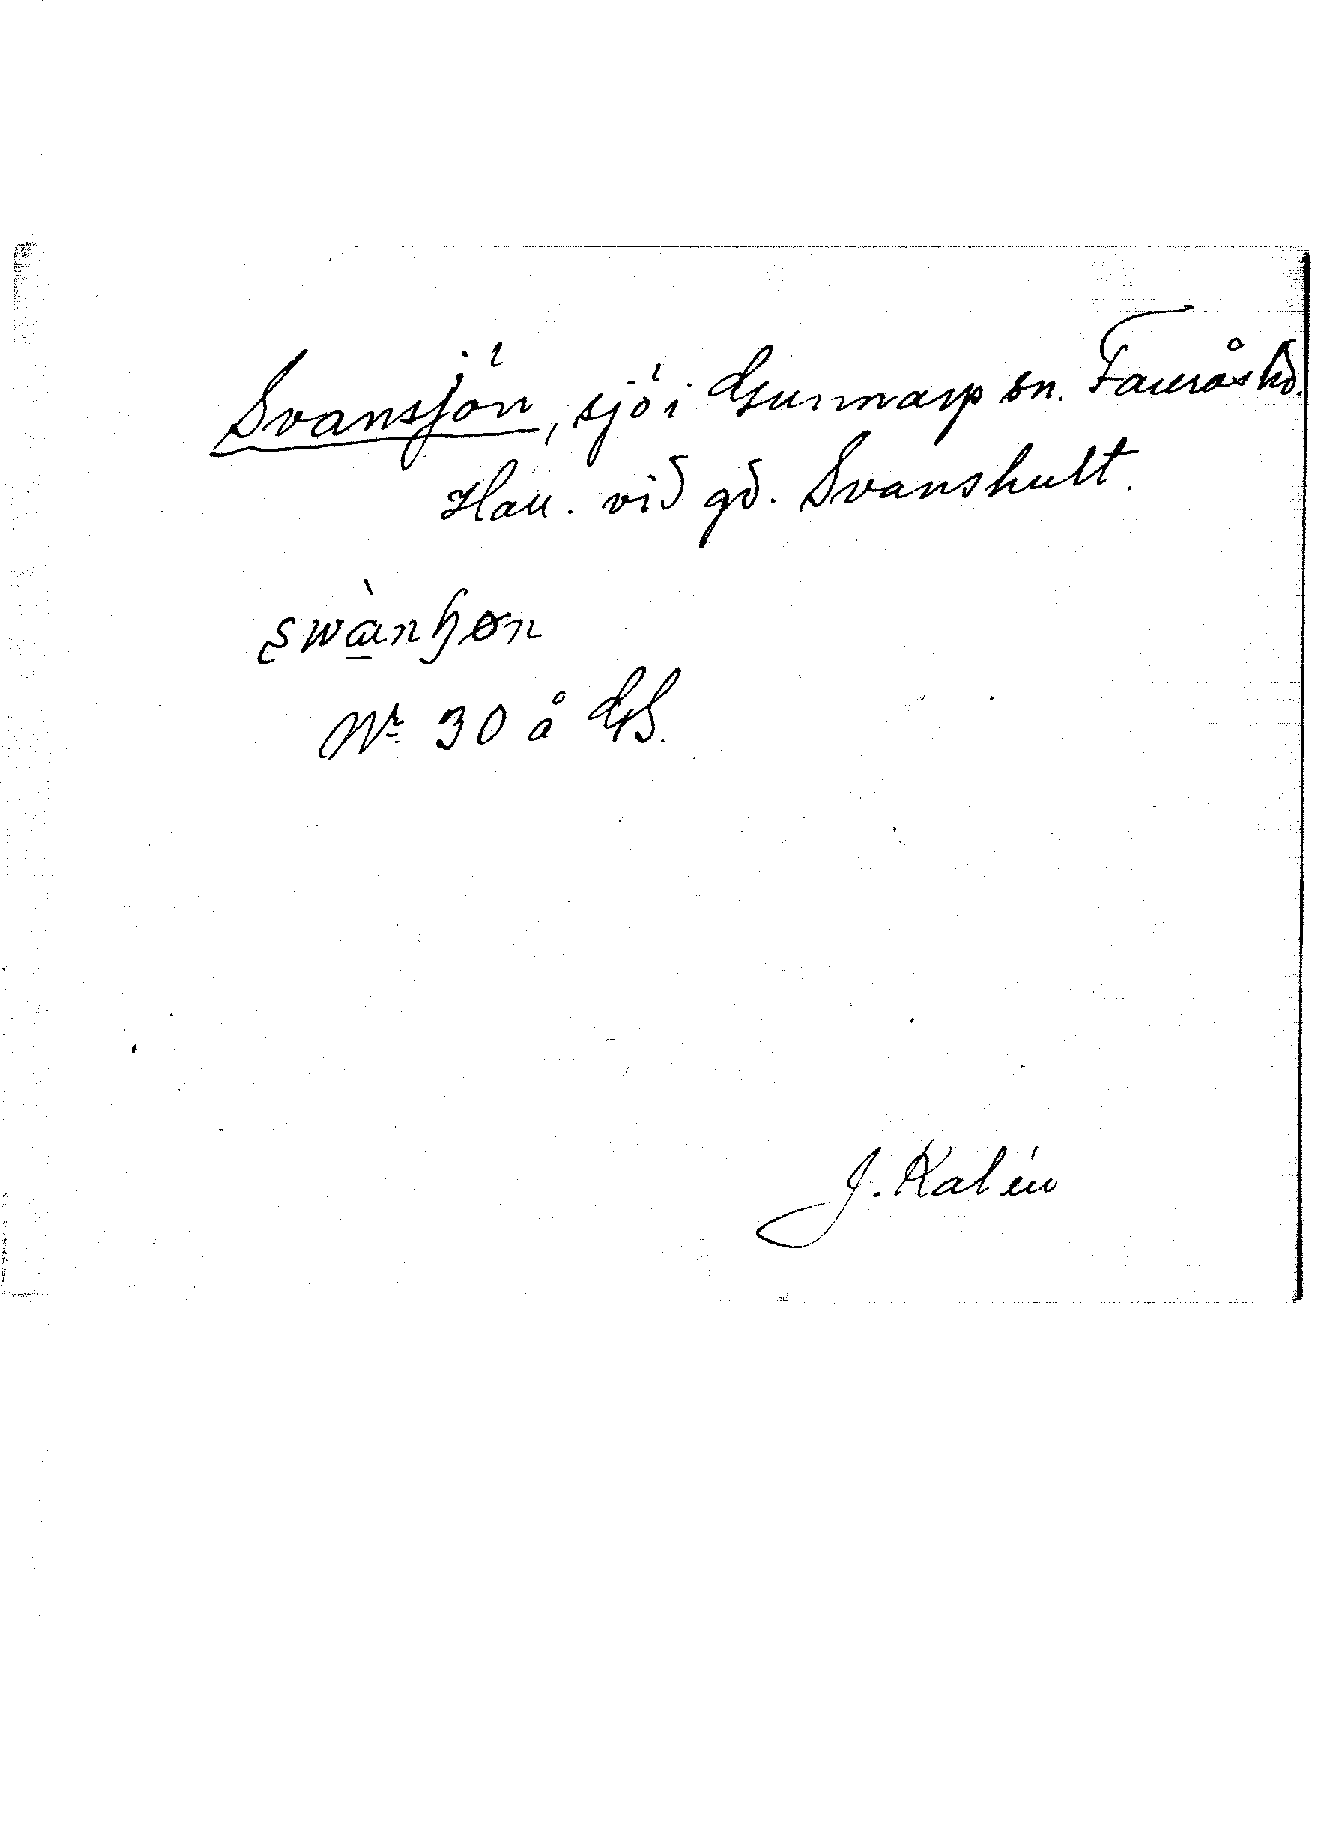 Svansjön, sjö i Gunnarp sn. Faurås hd.
Hall. vid gd. Svanshult.
Nr 30 å GS.
J. Kalén